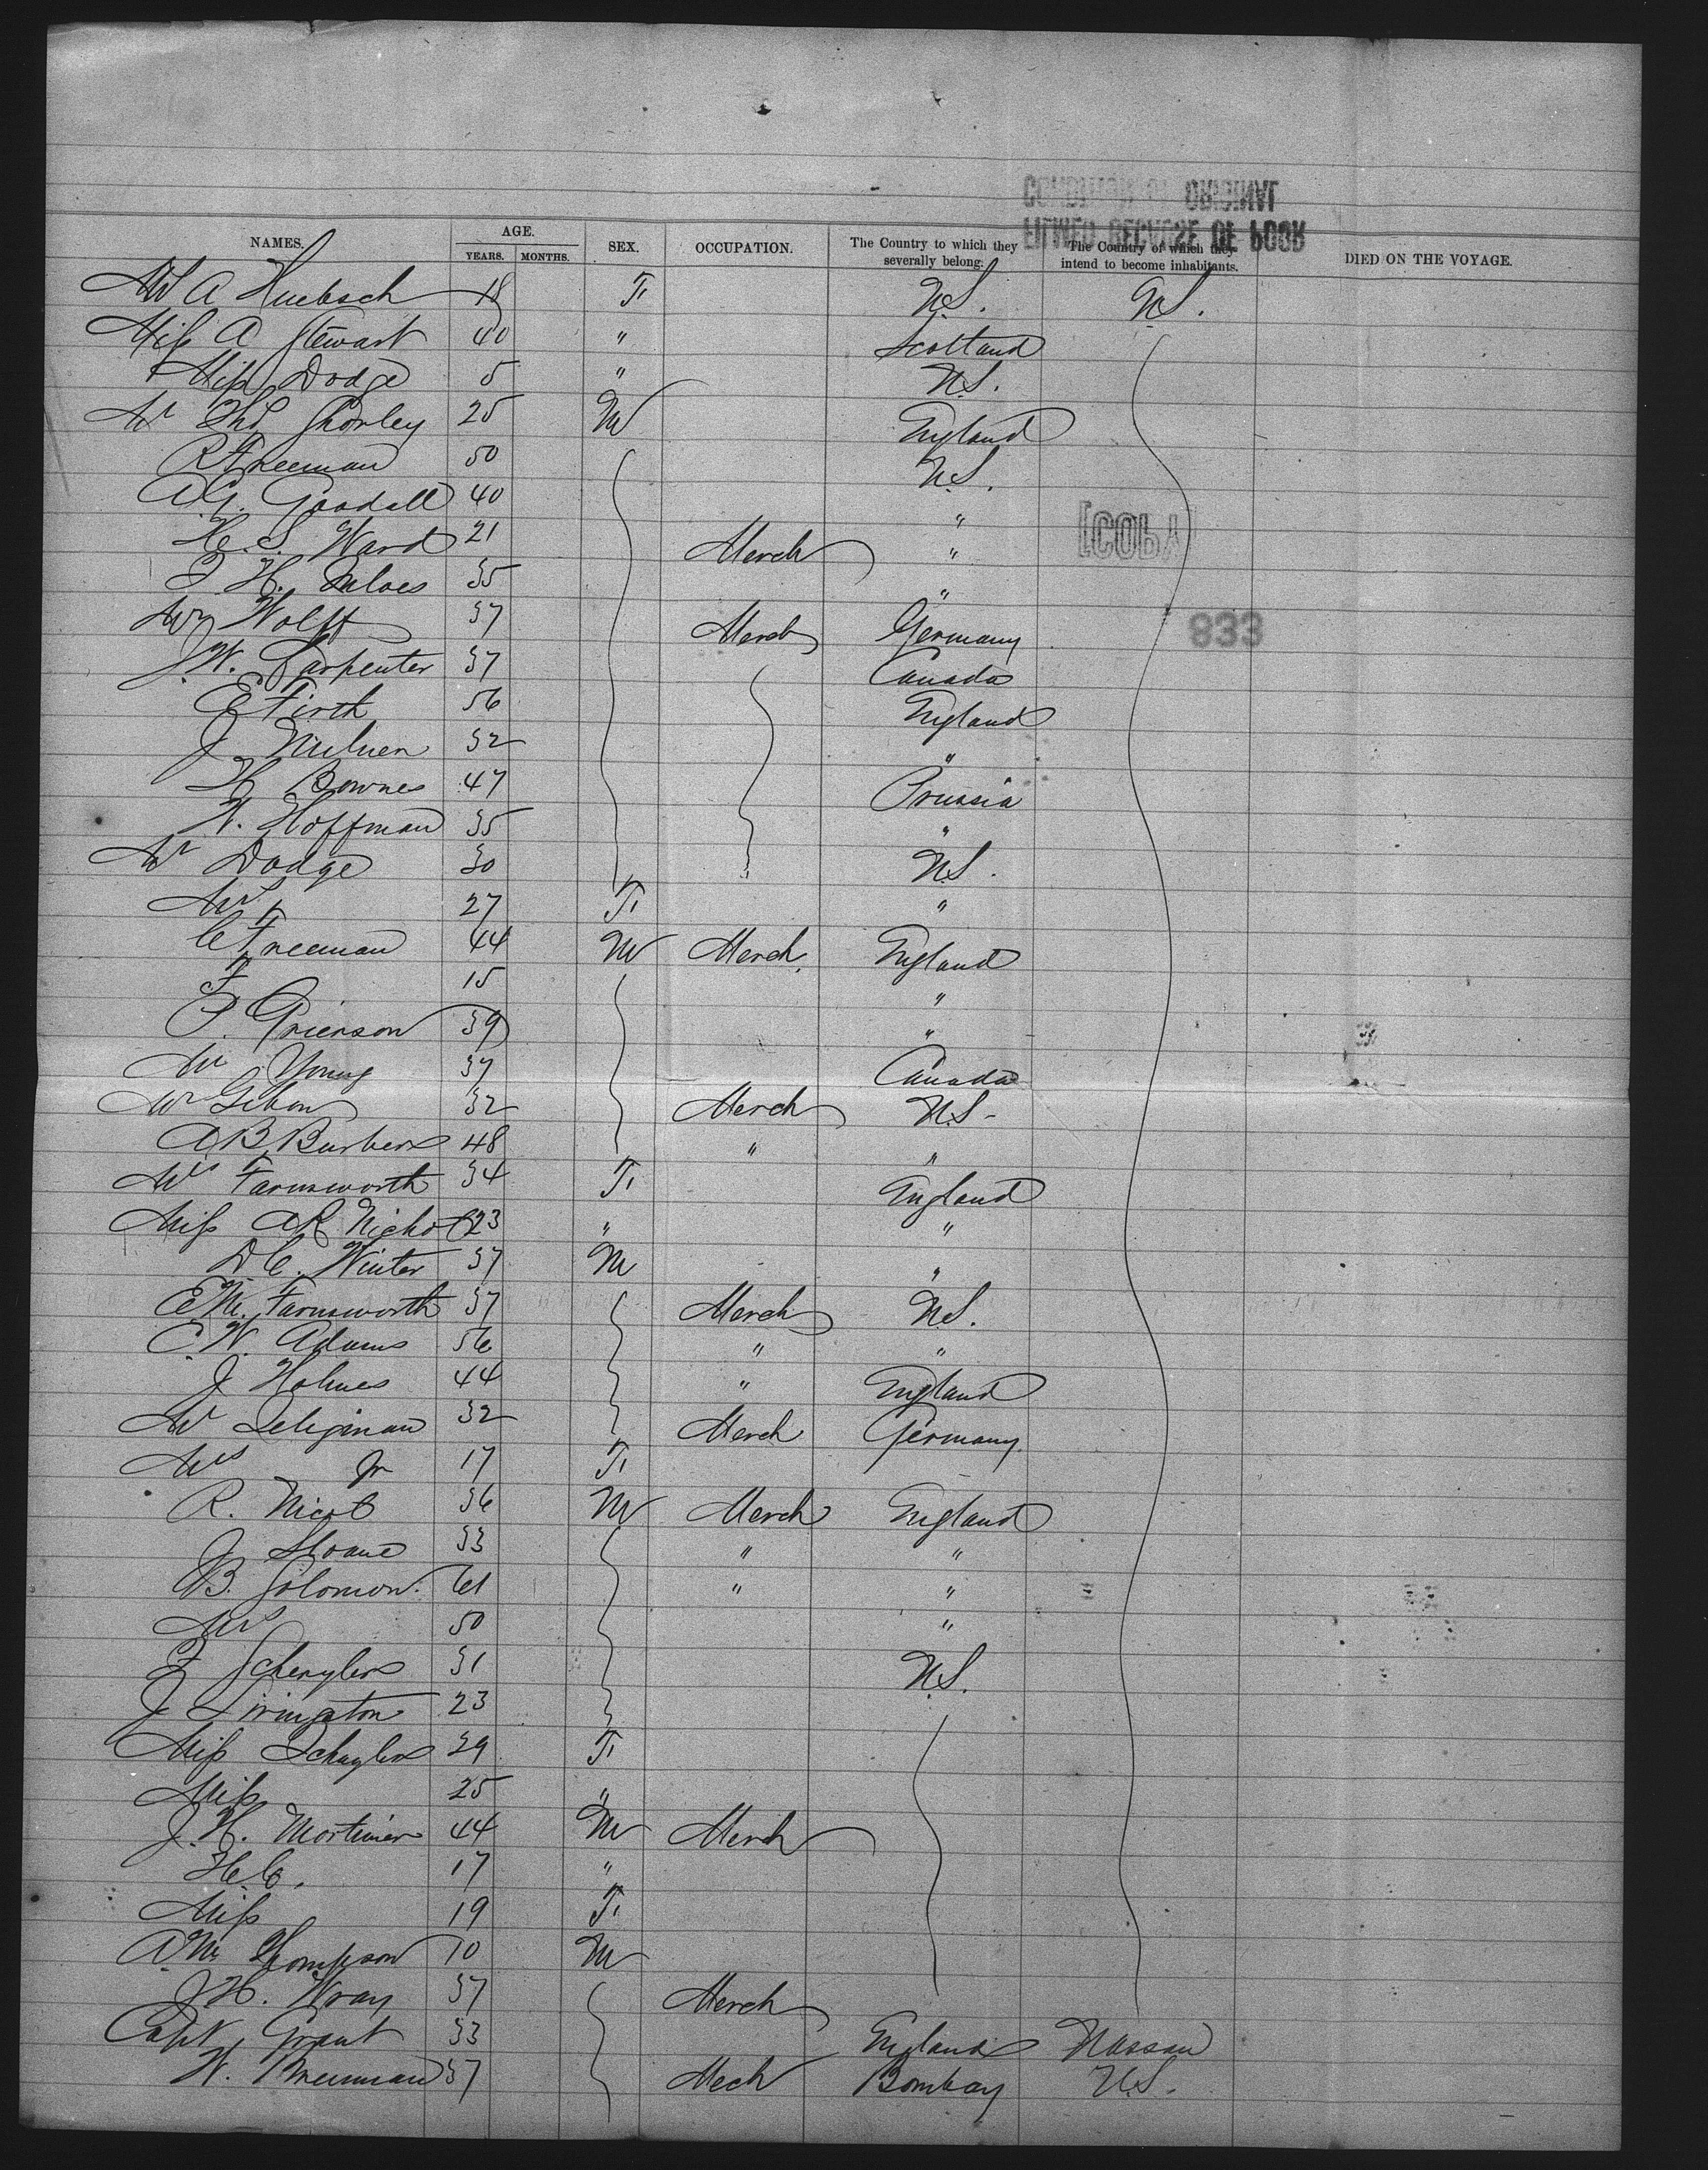 CONDITION OF ORIGINAL
FILMED BECAUSE OF POOR
NAMES. AGE. YEARS. MONTHS. SEX. OCCUPATION. The Country to which they severally belong. The Country of which they intend to become inhabitants. DIED ON THE VOYAGE.
A Huebsch 18 F U.S. U.S.
Miss A Stewart 40 " Scotland
Miss Dodge 5 " U.S.
Mr Thos Shorley 25 M England
R Freeman 50 U.S.
A.G. Goodall 40 "
H. S. Ward 21 Merch "
H. 35 "
Mr Wolff 37 Merch Germany
J.W. Carpenter 37 Canada
E Firth 56 England
J 32 "
H Bownes 47 Prussia
W. Hoffman 35 "
Mr Dodge 30 U.S.
Mrs " 27 F "
C Freeman 44 M Merch. England
F " 15 "
P. Grierson 39 "
Mr Young 37 Canada
Mr 32 Merch U.S.
A B 48 " "
Mrs Farnsworth 34 F England
Miss A R Nichol 23 " "
D C. Winter 37 M "
E.M. Farnsworth 37 Merch U.S.
E. W. Adams 56 " "
J Holmes 44 " England
Mr Seligman 32 Merch Germany
Mrs " 17 F
R. Nicol 36 M Merch England
J Sloane 33 " "
B. Solomon 61 " "
Mrs 50 "
31 U.S.
J Livingston 23
Miss Schuyler 29 F
Miss 25 "
J. H. Mortimer 44 M Merch
H.C. 17 "
Miss 19 F
A.M. Thompson 10 M
J H. Wray 37 Merch
Capt Grant 33 England Nassau
W. 37 Mech Bombay U.S.
[COPY]
833